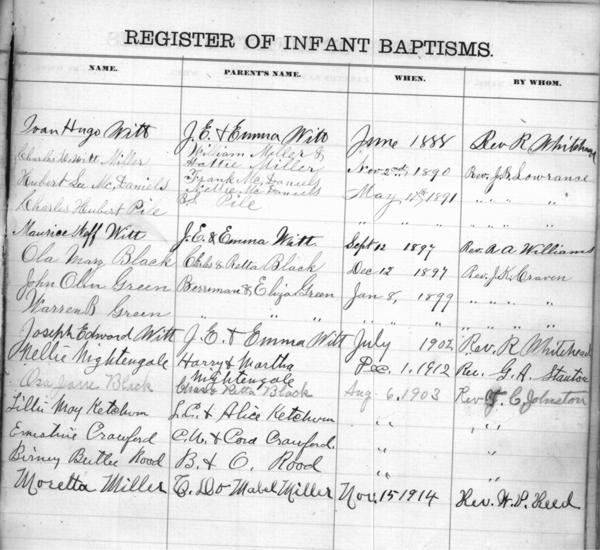 REGISTER OF INFANT BAPTISMS.
NAME. PARENT'S NAME. WHEN. BY WHOM.
Ivan Hugo Witt J. E. & Emma Witt June 1888 Rev R. Whitehead
Charles DeWitt Miller William Miller & Hattie Miller Nov 2nd, 1890 Rev. J. B. Lowrance
Hubert Lee McDaniels Frank McDaniels Nellie McDaniels May 11th, 1891 " " " "
Charles Hubert Pile B S Pile " " " " " "
Maurice Neff Witt J. E. & Emma Witt Sept 12 1897 Rev. R A Williams
Ola May Black Chas & Retta Black Dec 12 1897 Rev. J. K. Craven
John Olin Green Berriman & Eliza Green Jan 8, 1899 " " "
Warren B Green " " " " " " " "
Joseph Edward Witt J. E. & Emma Witt July 1902 Rev. R Whitehead
Nellie Nightengale Harry & Martha Nightengale Dec. 1, 1912 Rev. G. A. Stanton
Black Chas & Retta Black Aug 6, 1903 Rev J. C. Johnston
Lillie May Ketchum J. C. & Alice Ketchum " " "
Ernestine Crawford C. W. & Cora Crawford. " " "
Birney Rood B. & O. Rood " "
Moretta Miller Mabel Miller Nov. 15 1914 Rev. W. P. Reed